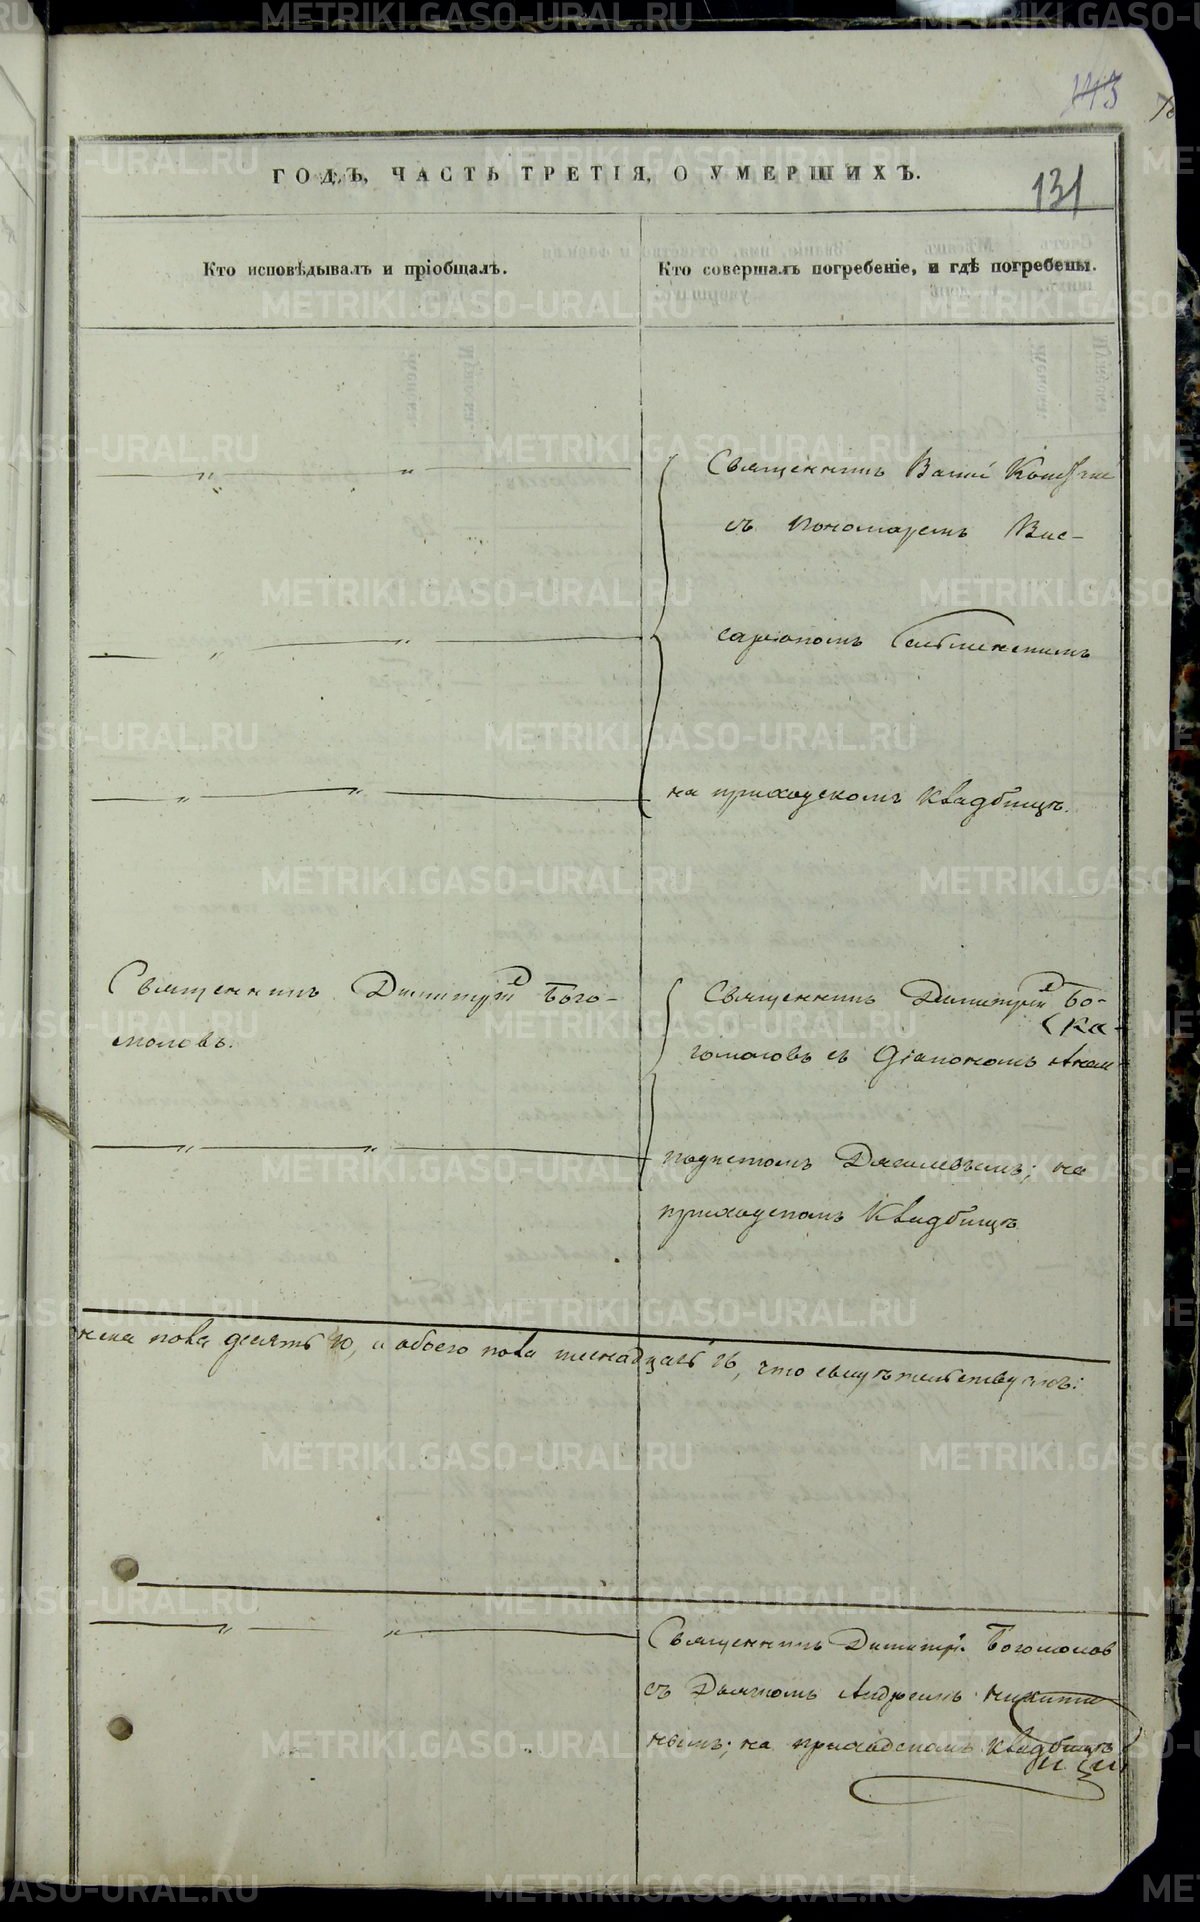 143
ГОДЪ, ЧАСТЬ ТРЕТІЯ, О УМЕРШИХЪ.
131
Кто исповѣдывалъ и пріобщалъ.
Кто совершалъ погребеніе, и гдѣ погребены.
Священникъ
съ пономаремъ Вис-
саріономъ
на приходскомъ кладбищѣ.
Священникъ Димитрій Бого-
моловъ.
Священникъ Димитрій Бо-
гомоловъ съ Діакономъ
на
приходскомъ кладбищѣ
пола десять 10, а обоего пола шестнадцать 16, что свидѣтельствуютъ:
Священникъ Димитрій Богомолов
съ Дьячкомъ Андреемъ Никити
нымъ; на приходскомъ кладбищѣ
METRIKI.GASO-URAL.RU